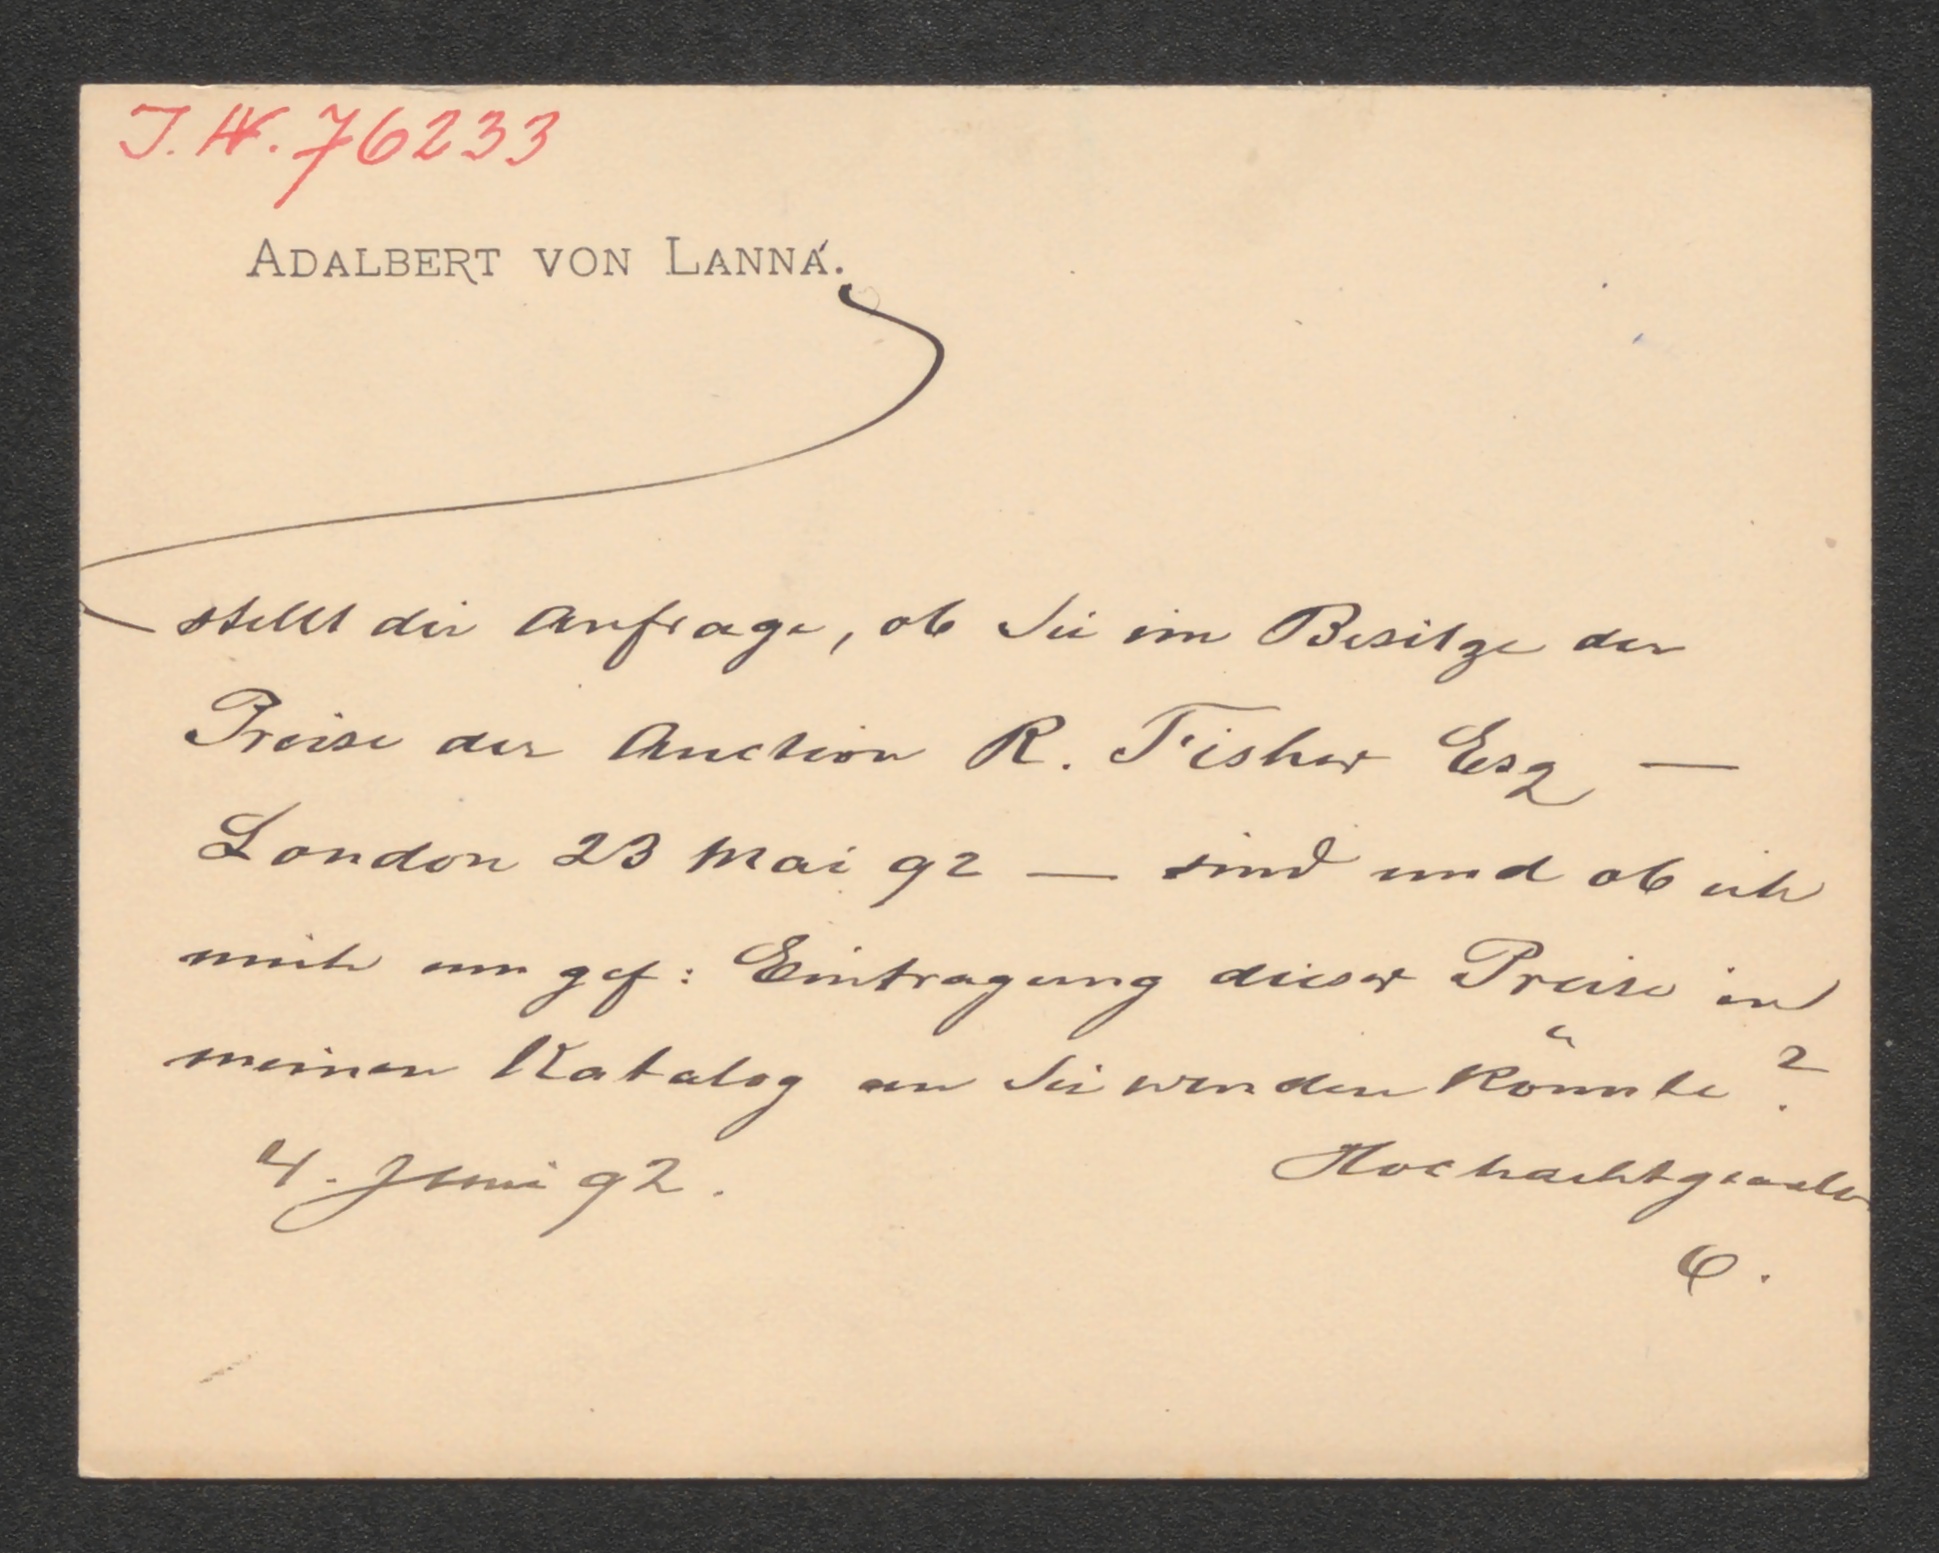 J.N. 76233
ADALBERT VON LANNÁ.
stellt die Anfrage, ob Sie im Besitze der
Preise der Auction R. Fisher Esq —
London 23 Mai 92 — sind und ob ich
mich um gef: Eintragung dieser Preise in
meinen Katalog an Sie wenden könnte?
4. Juni 92.